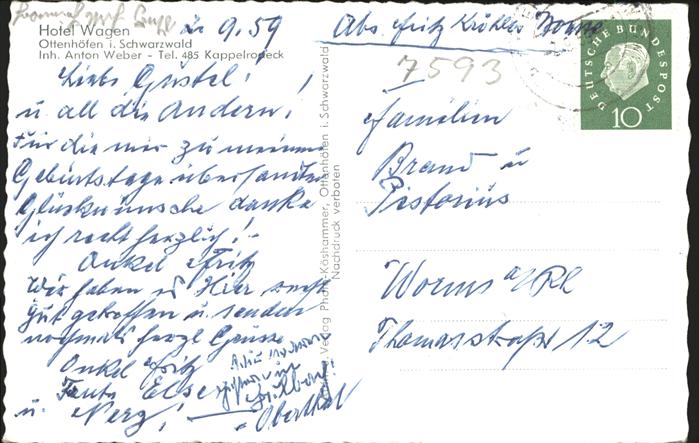 Hotel Wagen
Ottenhöfen i. Schwarzwald
Inh. Anton Weber - Tel. 485 Kappelrodeck
9.59
Abs. Fritz
7593
DEUTSCHE BUNDESPOST
10
Liebe Gustel!
u. all die Andern!
Für die mir zu meinem
Geburtstage übersandten
Glückwünsche danke
ich recht herzlich!
Onkel Fritz
Wir haben Hier recht
gut getroffen u. senden
nochmals herzl Grüsse
Onkel Fritz
Tante Else
u.
Verlag Phot. Köshammer, Ottenhöfen i. Schwarzwald
Nachdruck verboten
Familien
Brand u
Pistorius
Worms a/Rh
Thomasstraße 12